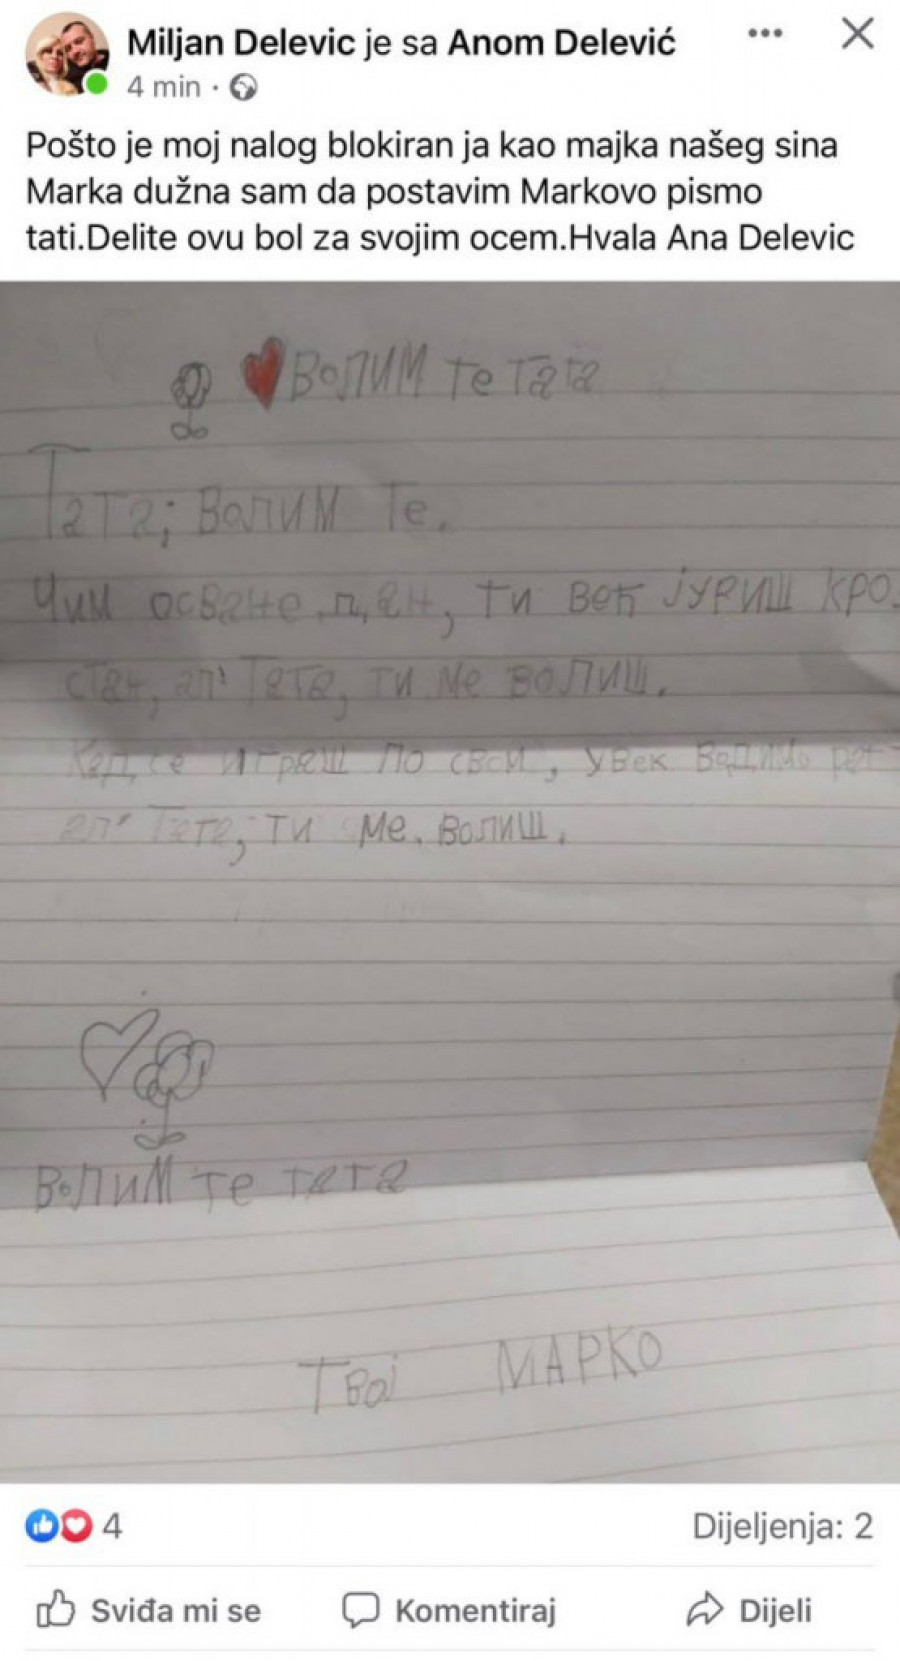 Miljan Delevic je sa Anom Delević
4 min
Pošto je moj nalog blokiran ja kao majka našeg sina
Marka dužna sam da postavim Markovo pismo
tati.Delite ovu bol za svojim ocem.Hvala Ana Delevic
ВОЛИМ Те Тата
Тата; Волим Те.
Чим осване дан, ти већ јуриш кро
стан, ал' Тата, ти ме волиш.
Кад се играш по свом, увек водимо рат
ал' Тата, ти ме. волиш.
Волим те тата
Твој МАРКО
4
Dijeljenja: 2
Sviđa mi se
Komentiraj
Dijeli